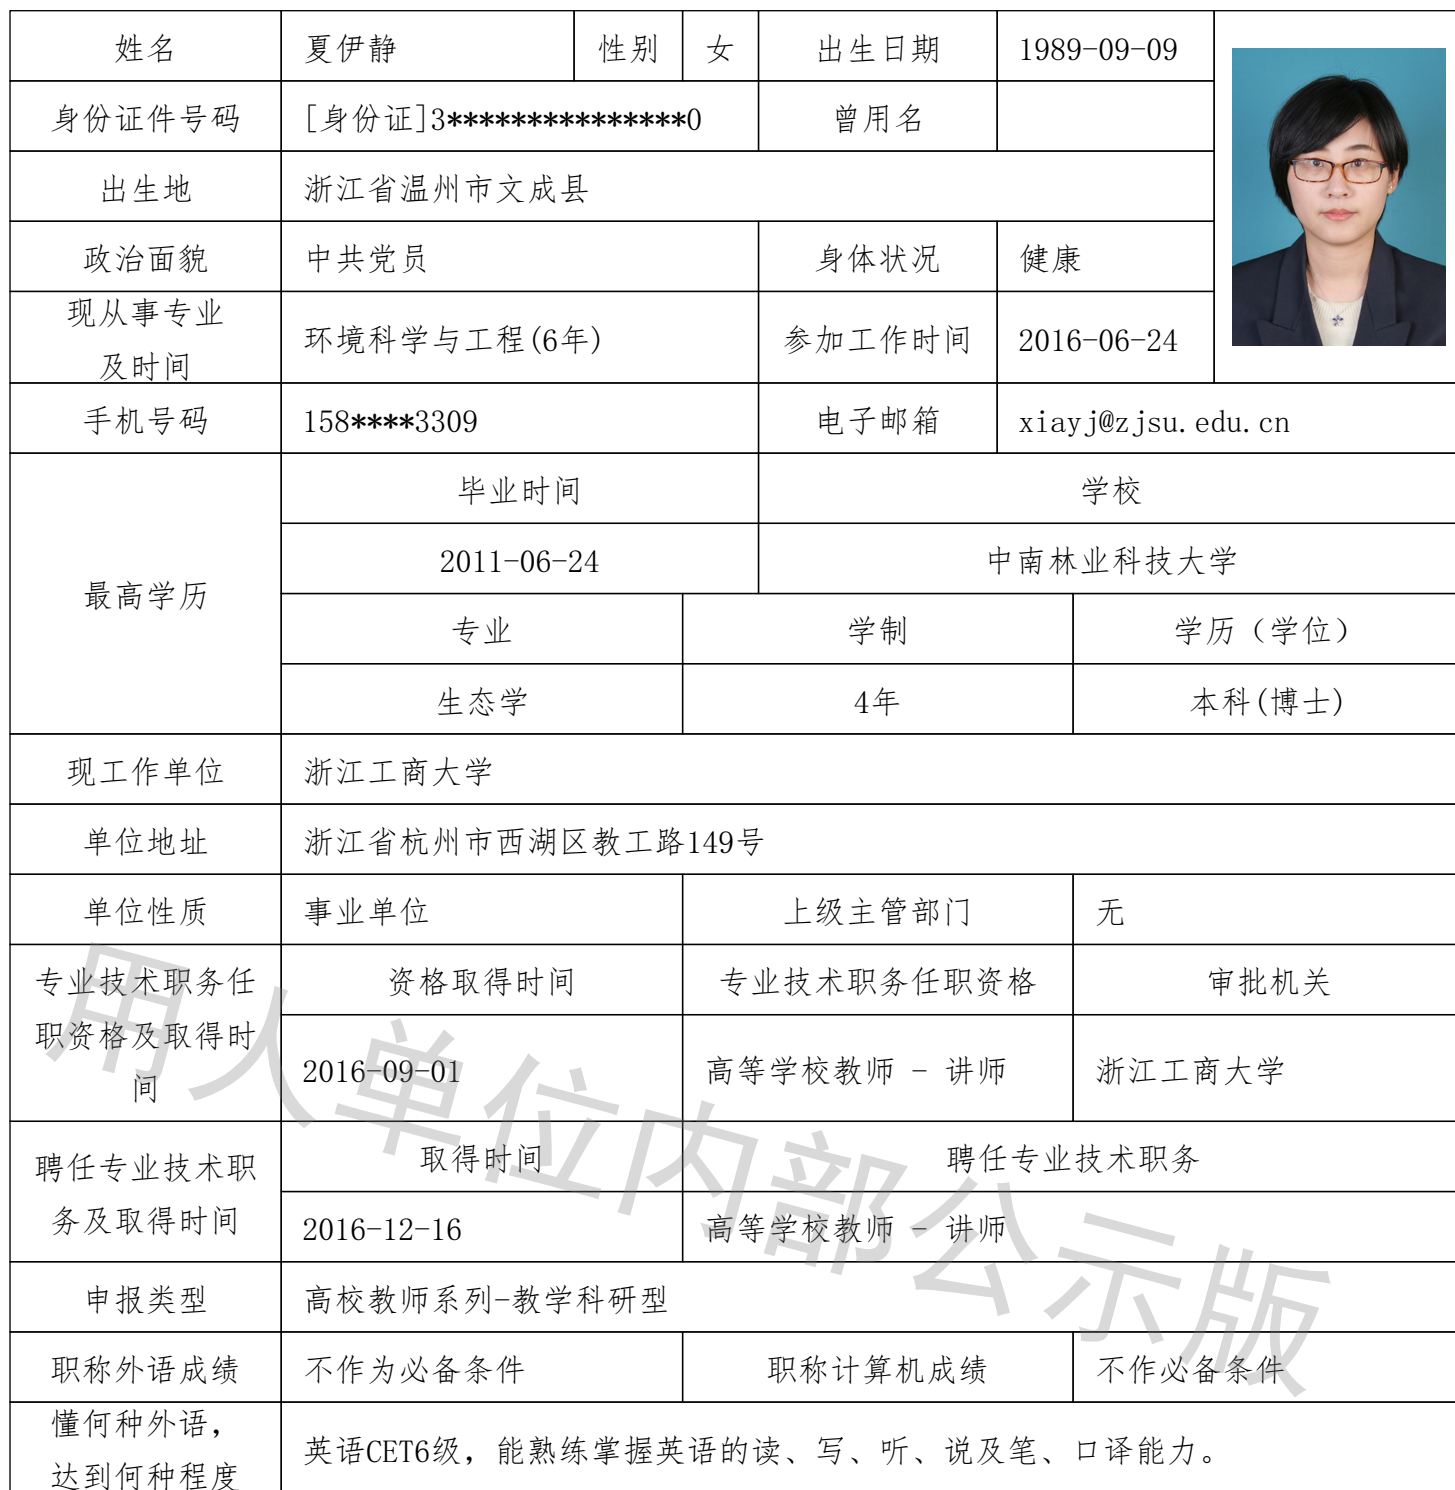 姓名 夏伊静 性别 女 出生日期 1989-09-09
身份证件号码 [身份证]3***************0 曾用名
出生地 浙江省温州市文成县
政治面貌 中共党员 身体状况 健康
现从事专业
及时间 环境科学与工程(6年) 参加工作时间 2016-06-24
手机号码 158****3309 电子邮箱 xiayj@zjsu.edu.cn
最高学历
毕业时间 学校
2011-06-24 中南林业科技大学
专业 学制 学历（学位）
生态学 4年 本科(博士)
现工作单位 浙江工商大学
单位地址 浙江省杭州市西湖区教工路149号
单位性质 事业单位 上级主管部门 无
专业技术职务任
职资格及取得时
间
资格取得时间 专业技术职务任职资格 审批机关
2016-09-01 高等学校教师 - 讲师 浙江工商大学
聘任专业技术职
务及取得时间
取得时间 聘任专业技术职务
2016-12-16 高等学校教师 - 讲师
申报类型 高校教师系列-教学科研型
职称外语成绩 不作为必备条件 职称计算机成绩 不作必备条件
懂何种外语，
达到何种程度 英语CET6级，能熟练掌握英语的读、写、听、说及笔、口译能力。
用人单位内部公示版